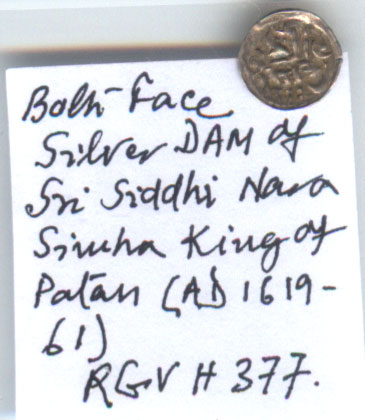 Both-Face
Silver DAM of
Sri Siddhi Nara
Simha King of
Patan (AD 1619-
61)
RGV # 377.